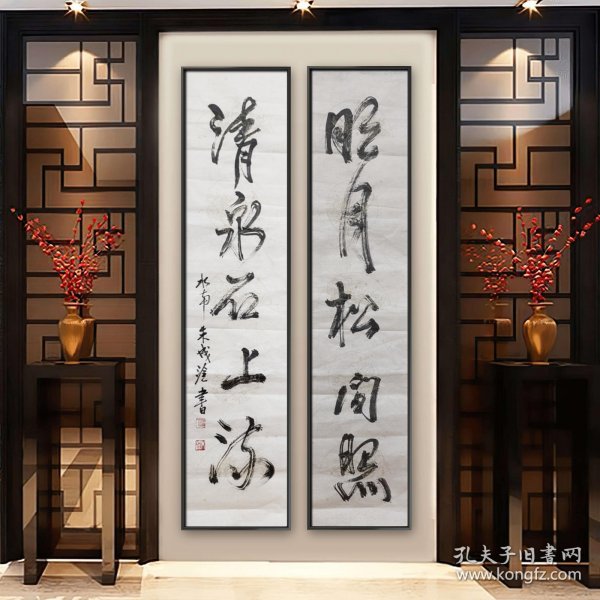 明月松间照
清泉石上流
朱成淦書
孔夫子旧書网
www.kongfz.com